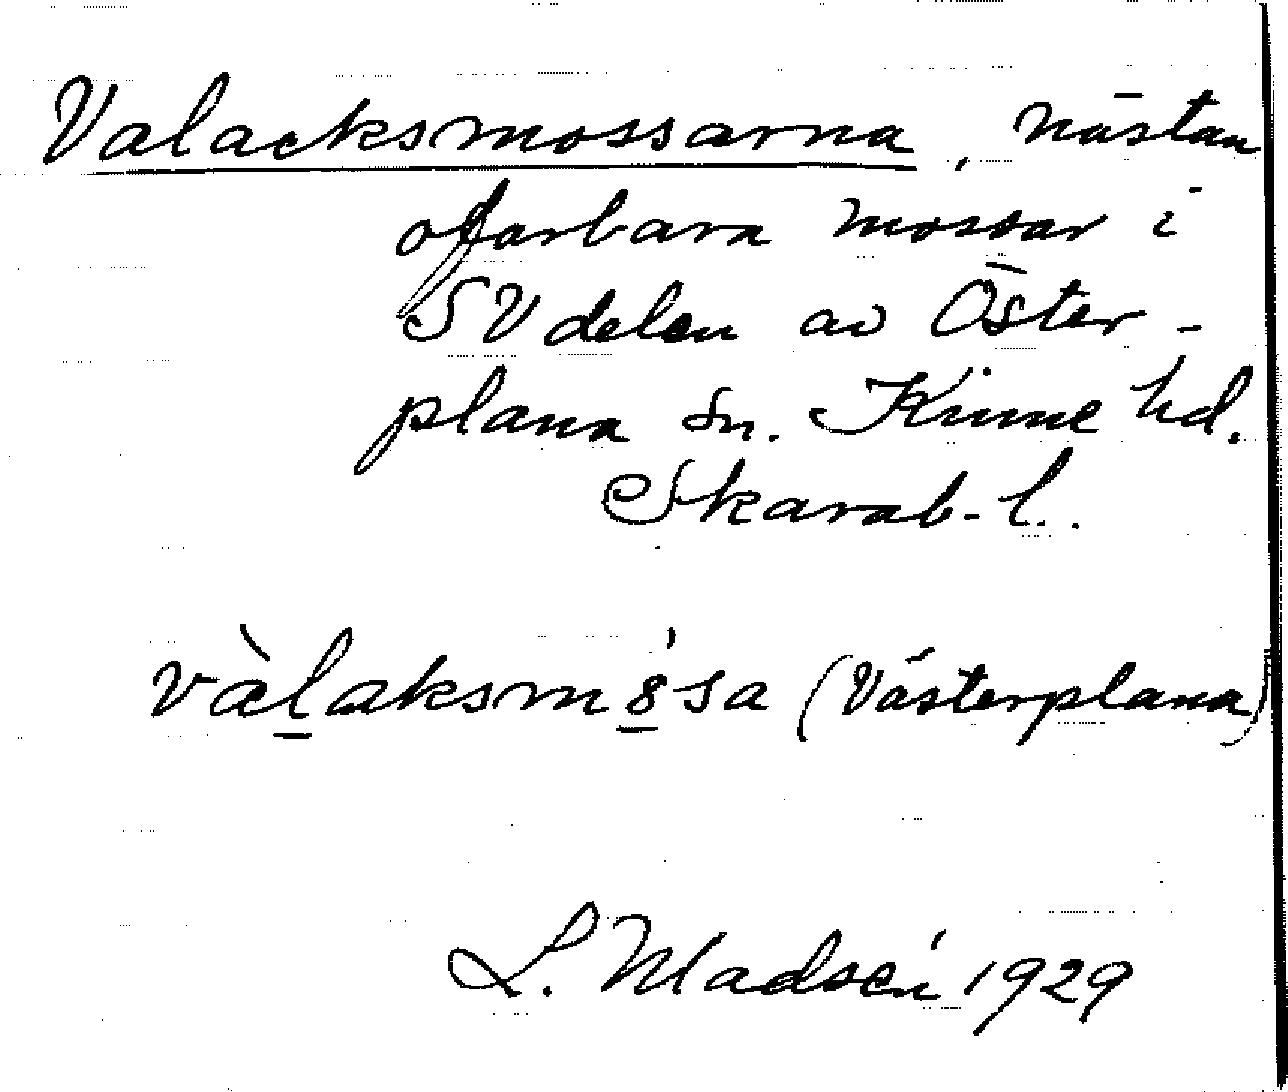 Valacksmossarna, nästan
ofarbara mossar i
SV delen av Öster-
plana sn. Kinne hd.
Skarab. l.
vàlaksm8́sa (Västerplana)
L. Madsén 1929